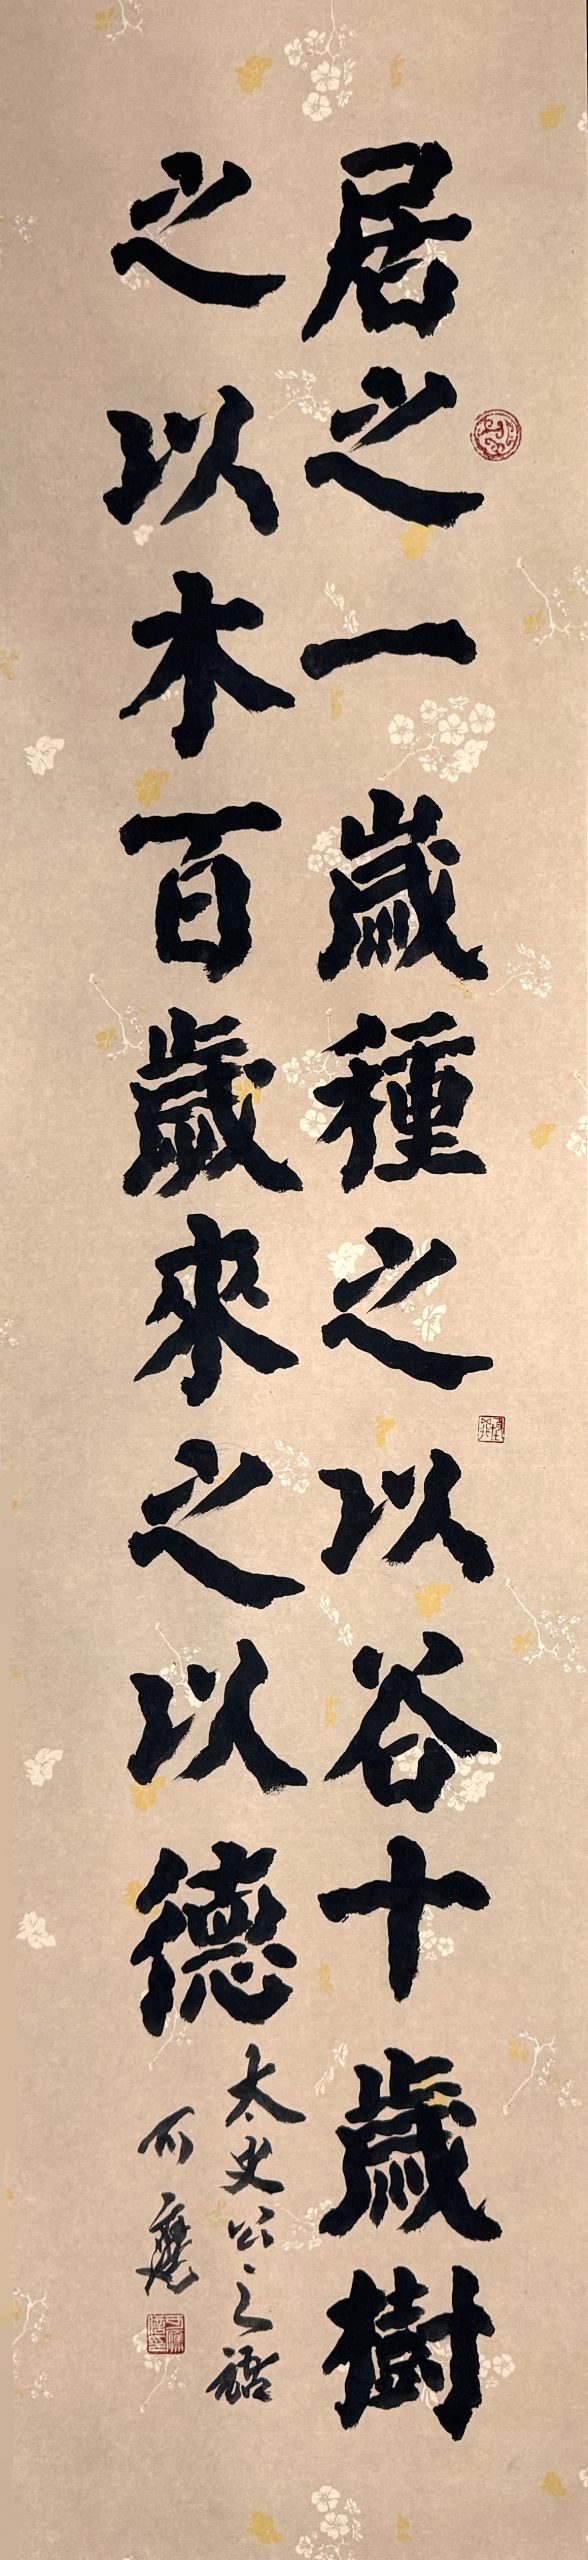 居之一歲種之以谷十歲樹
之以木百歲來之以德
太史公之語
可應